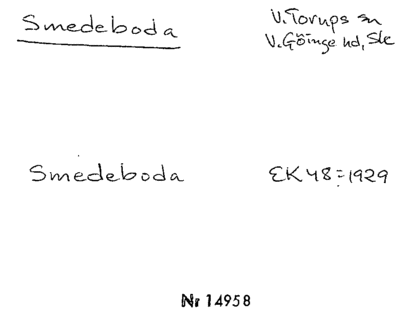 Smedeboda
V. Torups sn
V. Göinge hd, Sk
Smedeboda
EK 48 = 1929
Nr 14958